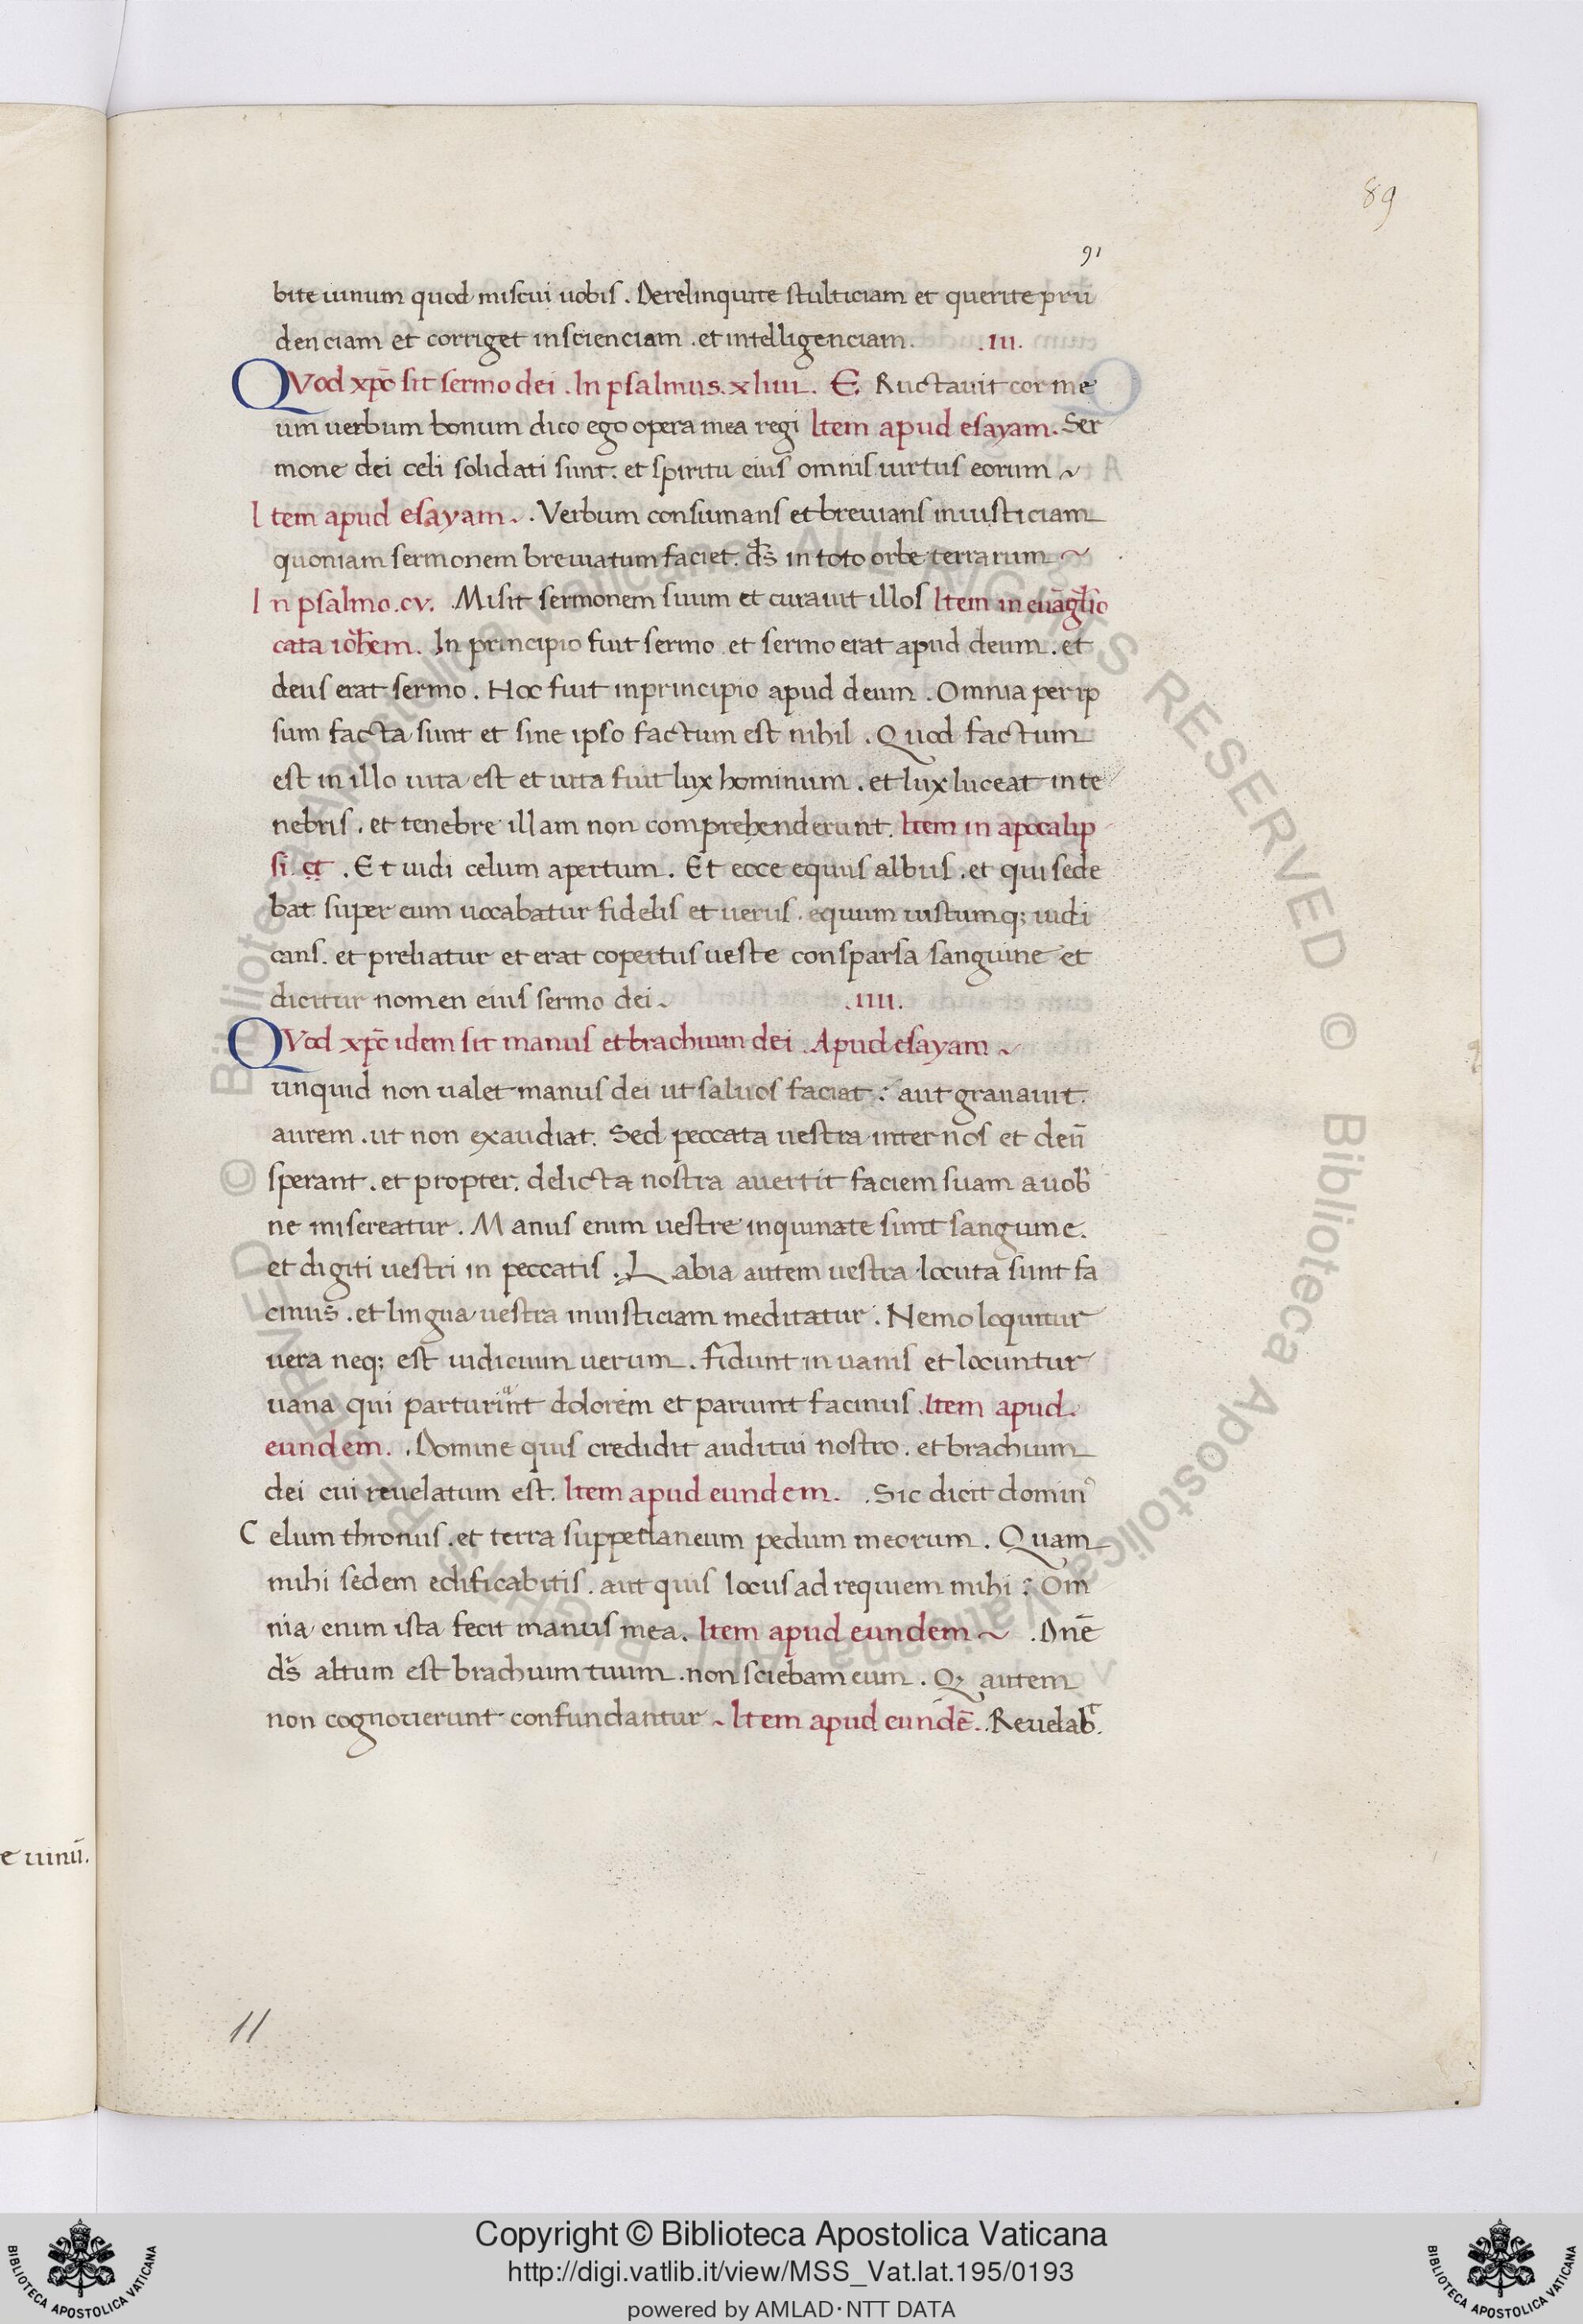 89
91
bite uinum quod miscui uobis. Derelinquite stulticiam et querite pru
denciam et corriget inscienciam. et intelligenciam. .III.
QVod xp̄o sit sermo dei. In psalmus. xliiii. E. Ructauit cor me
um uerbum bonum dico ego opera mea regi Item apud esayam. Ser
mone dei celi solidati sunt: et spiritu eius omnis uirtus eorum ~
Item apud esayam ~. Verbum consumans et breuians iniusticiam
quoniam sermonem breuiatum faciet. ds̄ in toto orbe terrarum ~
In psalmo. cv. Misit sermonem suum et curauit illos Item in euāgl̄io
cata ioh̄em. In principio fuit sermo. et sermo erat apud deum. et
deus erat sermo. Hoc fuit inprincipio apud deum. Omnia per ip
sum facta sunt et sine ipso factum est nihil. Quod factum
est in illo uita est et uita fuit lux hominum. et lux luceat in te
nebris. et tenebre illam non comprehenderunt. Item in apocalip
si. . Et uidi celum apertum. Et ecce equus albus. et qui sede
bat super eum uocabatur fidelis et uerus. equum iustumq; iudi
cans. et preliatur et erat copertus ueste consparsa sanguine et
dicitur nomen eius sermo dei ~ .IIII.
QVod xp̄c idem sit manus et brachium dei. Apud esayam ~
unquid non ualet manus dei ut saluos faciat: aut grauauit
aurem. ut non exaudiat. Sed peccata uestra inter nos et deū
sperant. et propter. delicta nostra auertit faciem suam a uob̄
ne misereatur. Manus enim uestre inquinate sunt sanguine.
et digiti uestri in peccatis. Labia autem uestra locuta sunt fa
cinus. et lingua uestra iniusticiam meditatur. Nemo loquitur
uera neq; est iudicium uerum. fidunt in uanis et locuntur
uana qui parturiunt dolorem et pariunt facinus. Item apud.
eundem. . Domine quis credidit auditui nostro. et brachium
dei cui reuelatum est. Item apud eundem. . Sic dicit domin᾽
Celum thronus. et terra suppedaneum pedum meorum. Quam
mihi sedem edificabitis. aut quis locus ad requiem mihi: Om
nia enim ista fecit manus mea. Item apud eundem ~ . Dn̄e
ds̄ altum est brachium tuum. non sciebam eum. Q; autem
non cognouerunt confundantur ~ Item apud eundē. . Reuelab̄.
e uinū.
11
© Biblioteca Apostolica Vaticana ALL RIGHTS RESERVED © Biblioteca Apostolica Vaticana ALL RIGHTS RESERVED
BIBLIOTECA APOSTOLICA VATICANA
Copyright © Biblioteca Apostolica Vaticana
http://digi.vatlib.it/view/MSS_Vat.lat.195/0193
powered by AMLAD·NTT DATA
BIBLIOTECA APOSTOLICA VATICANA